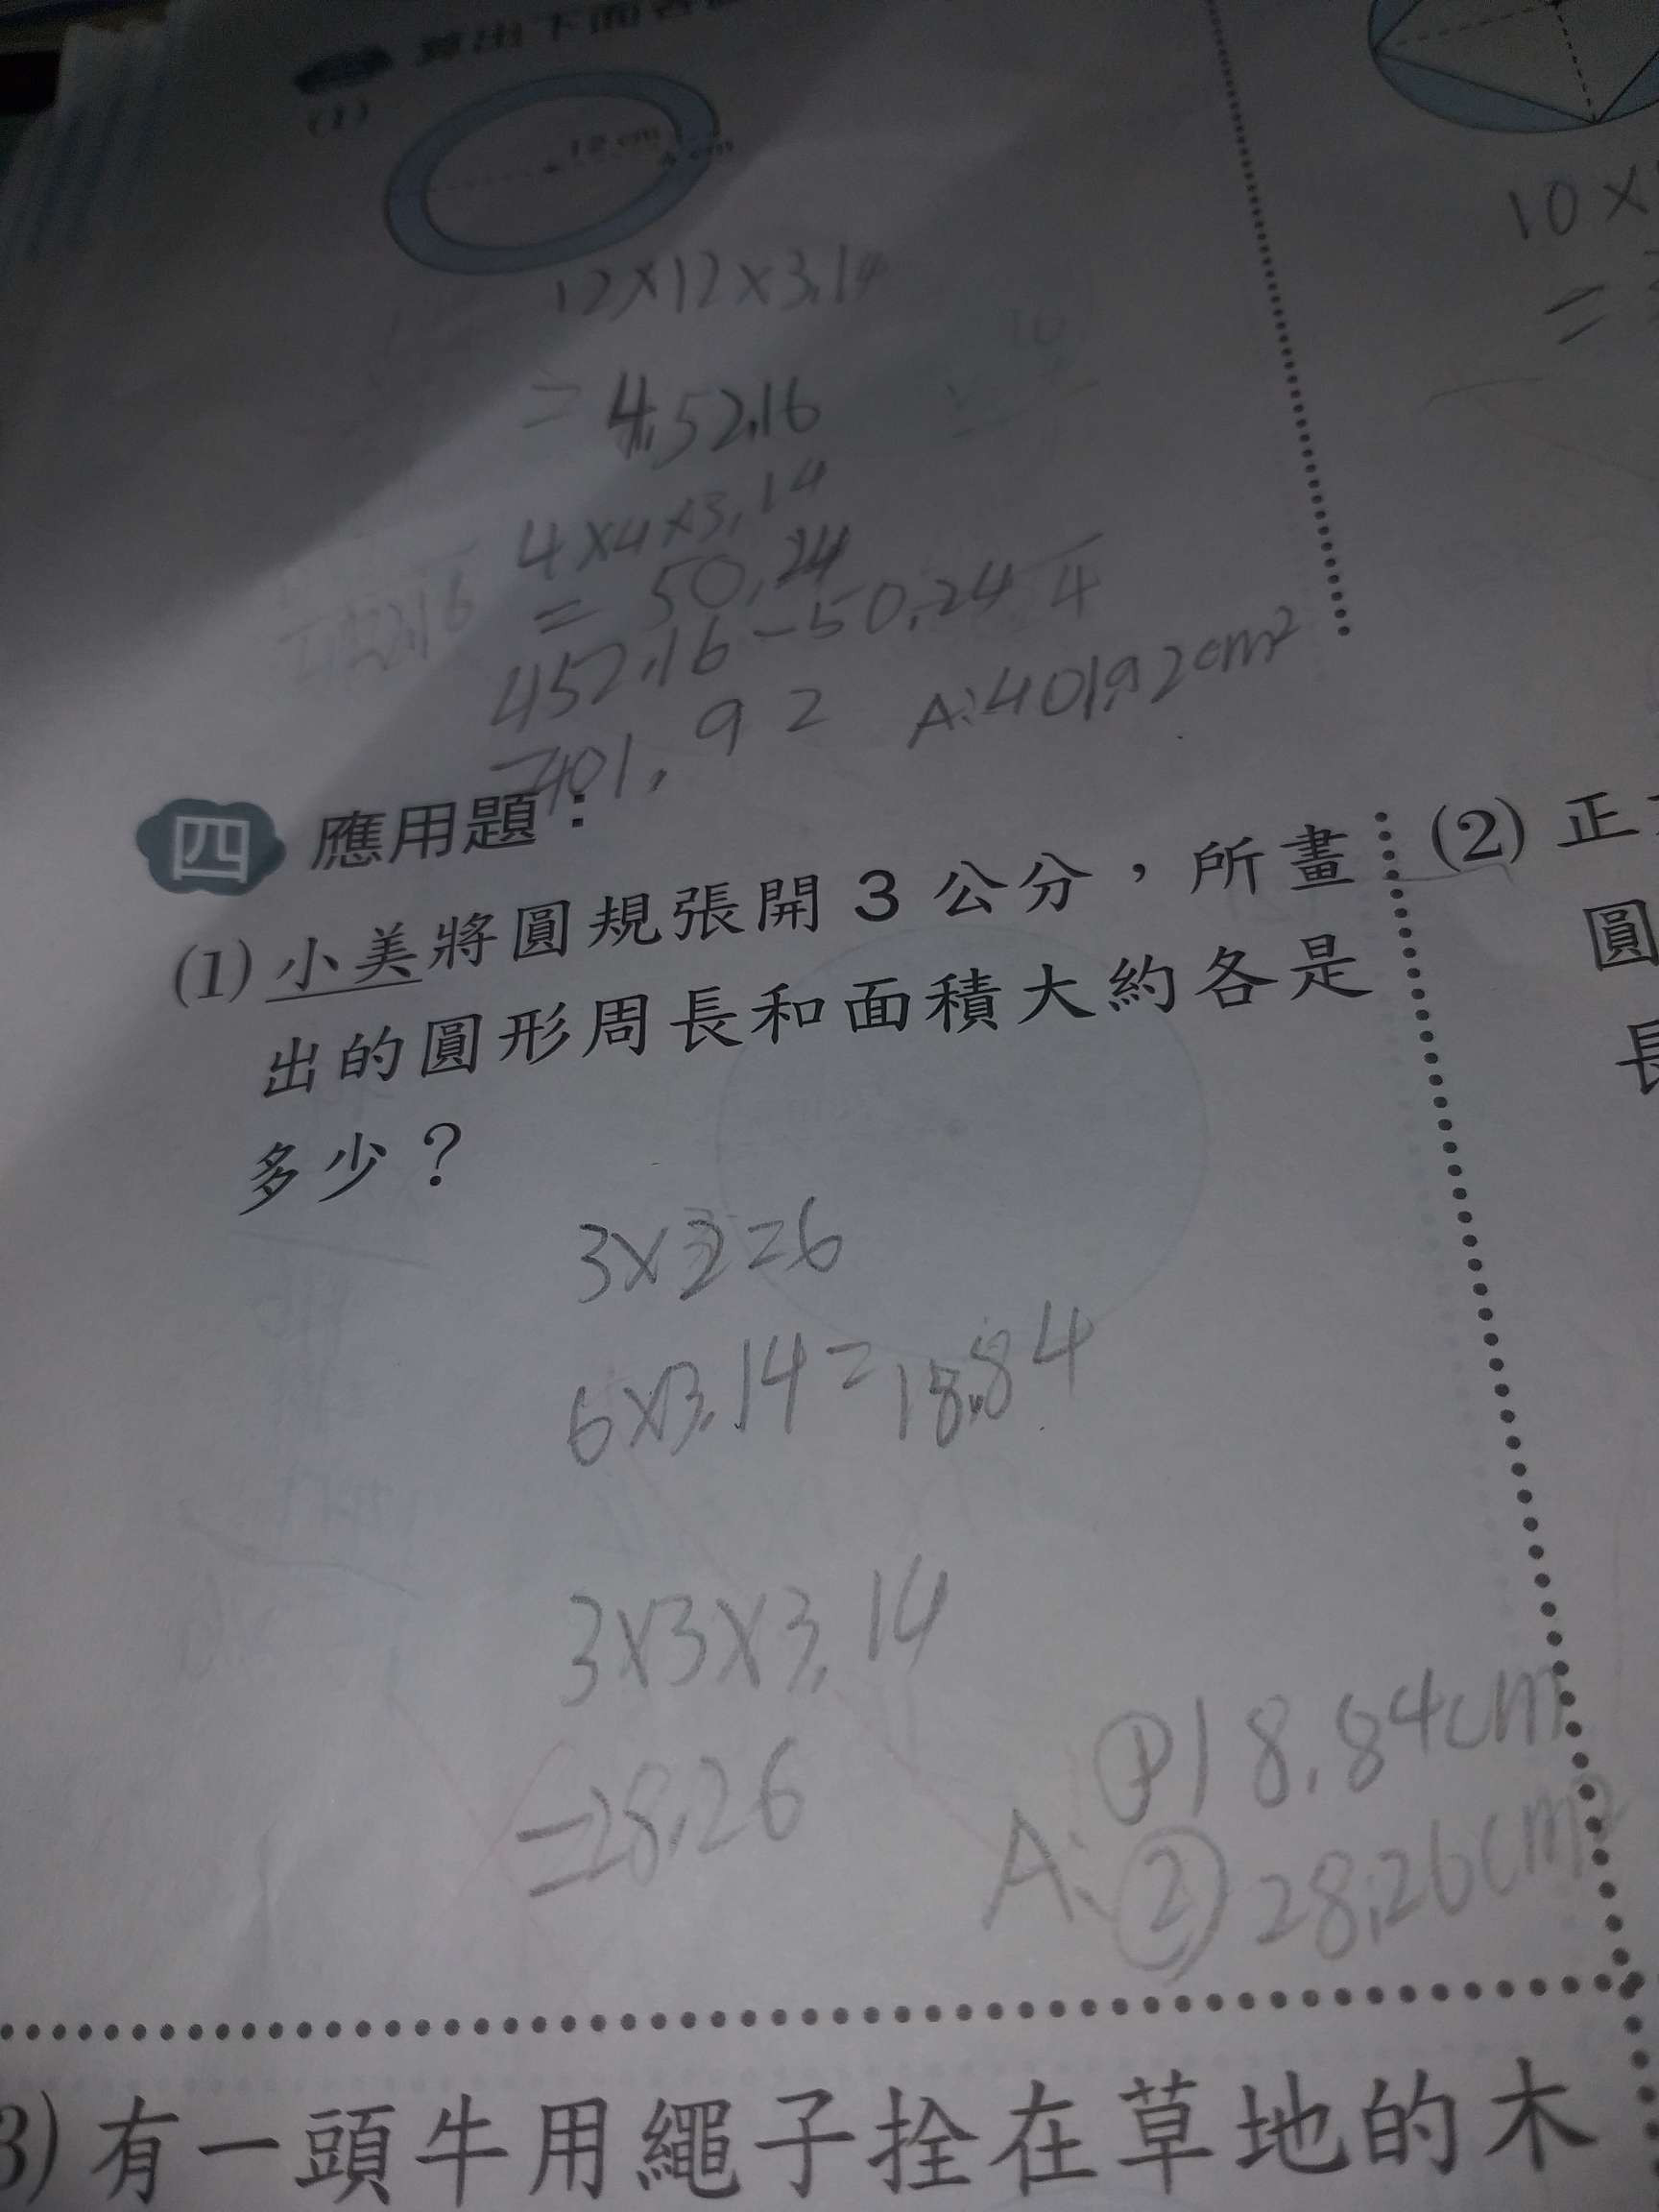 算出下面
(1)
12 cm
4 cm
12×12×3.14
= 452.16
4×4×3.14
= 50.24
452.16-50.24
=401.92 A:401.92cm²
10×
=
四 應用題：
(1) 小美將圓規張開 3 公分，所畫
出的圓形周長和面積大約各是
多少？
3×2=6
6×3.14=18.84
3×3×3.14
=28.26
A: ①18.84cm
②28.26cm²
(2) 正
圓
長
3) 有一頭牛用繩子拴在草地的木